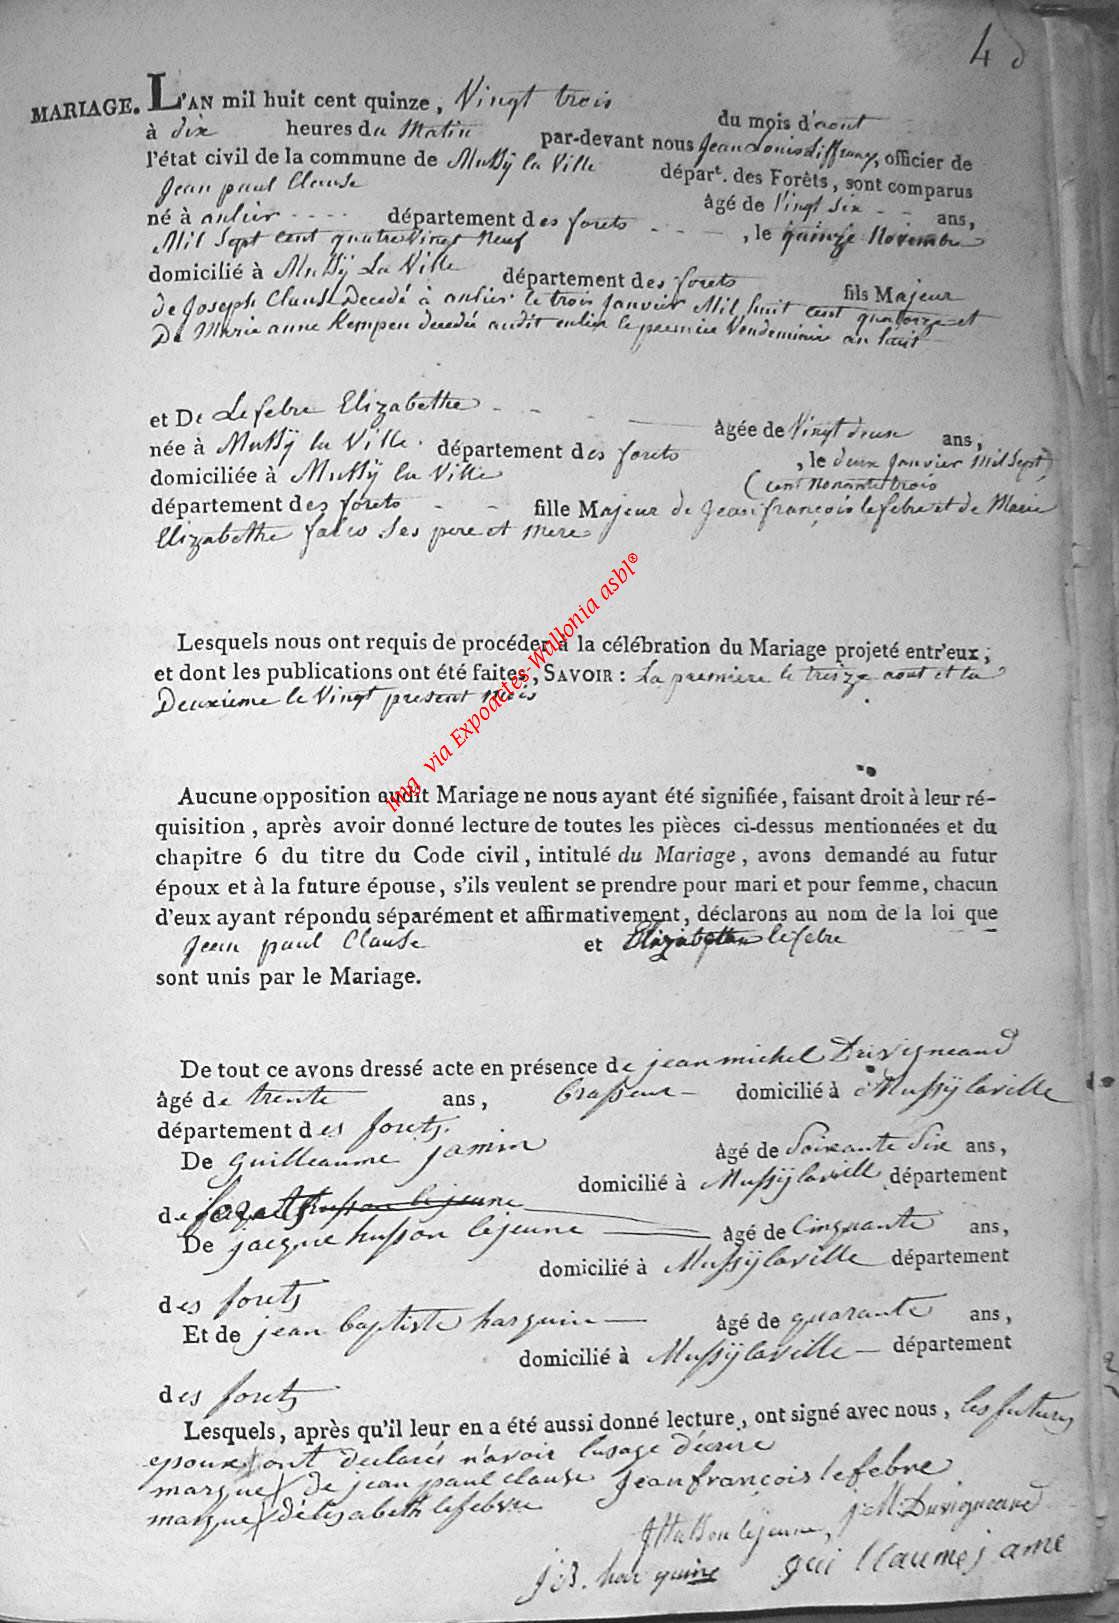 4
MARIAGE. L'AN mil huit cent quinze, Vingt trois du mois d'aout
à dix heures du Matin par-devant nous Jean Louis, officier de
l'état civil de la commune de Mussÿ la Ville départ. des Forêts, sont comparus
Jean paul Clause âgé de Vingt Six ans,
né à anlier département des forets, le quinze Novembre
Mil Sept cent quatre Vingt Neuf
domicilié à Mussÿ La Ville département des forets fils Majeur
de Joseph Clause Decedé à anlier le trois Janvier Mil huit cent quatorze et
De Marie anne Kempen decedée audit enlier le premier Vendemiaire an huit
et De Lefebre Elizabethe âgée de Vingt deux ans,
née à Mussÿ la Ville département des forets, le deux Janvier Mil Sept
domiciliée à Mussÿ la Ville (cent Nonante trois
département des forets fille Majeur de Jean françois lefebre et de Marie
Elizabethe Ses pere et Mere
Lesquels nous ont requis de procéder à la célébration du Mariage projeté entr'eux;
et dont les publications ont été faites, SAVOIR : La premiere le treize aout et la
Deuxieme le Vingt present Mois
Aucune opposition audit Mariage ne nous ayant été signifiée, faisant droit à leur ré-
quisition, après avoir donné lecture de toutes les pièces ci-dessus mentionnées et du
chapitre 6 du titre du Code civil, intitulé du Mariage, avons demandé au futur
époux et à la future épouse, s'ils veulent se prendre pour mari et pour femme, chacun
d'eux ayant répondu séparément et affirmativement, déclarons au nom de la loi que
Jean paul Clause et Elizabethe lefebre
sont unis par le Mariage.
De tout ce avons dressé acte en présence de jean michel
âgé de trente ans, brasseur domicilié à Mussÿ laville
département des forets.
De guilleaume jamin âgé de Soixante Six ans,
domicilié à Mussÿ laville département
des forets husson le jeune
De jacque husson lejeune âgé de Cinquante ans,
domicilié à Mussÿ laville département
des forets
Et de jean baptiste harguin âgé de quarante ans,
domicilié à Mussÿ laville département
des forets
Lesquels, après qu'il leur en a été aussi donné lecture, ont signé avec nous, les futurs
epoux ont declarés n'avoir lusage d'ecrire
marque X de jean paul clause Jean francois lefebre
marque X d'elisabeth lefebvre
J Husson lejeune, j: M: Duvigneaud
J:B. har quine gui llaume jame
img via Expoactes-Wallonia asbl®